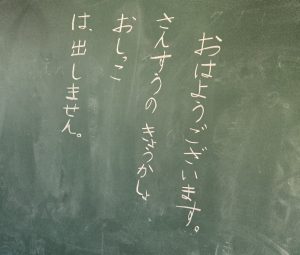 おはようございます。
さんすうの きょうかしょ
おしっこ
は、出しません。